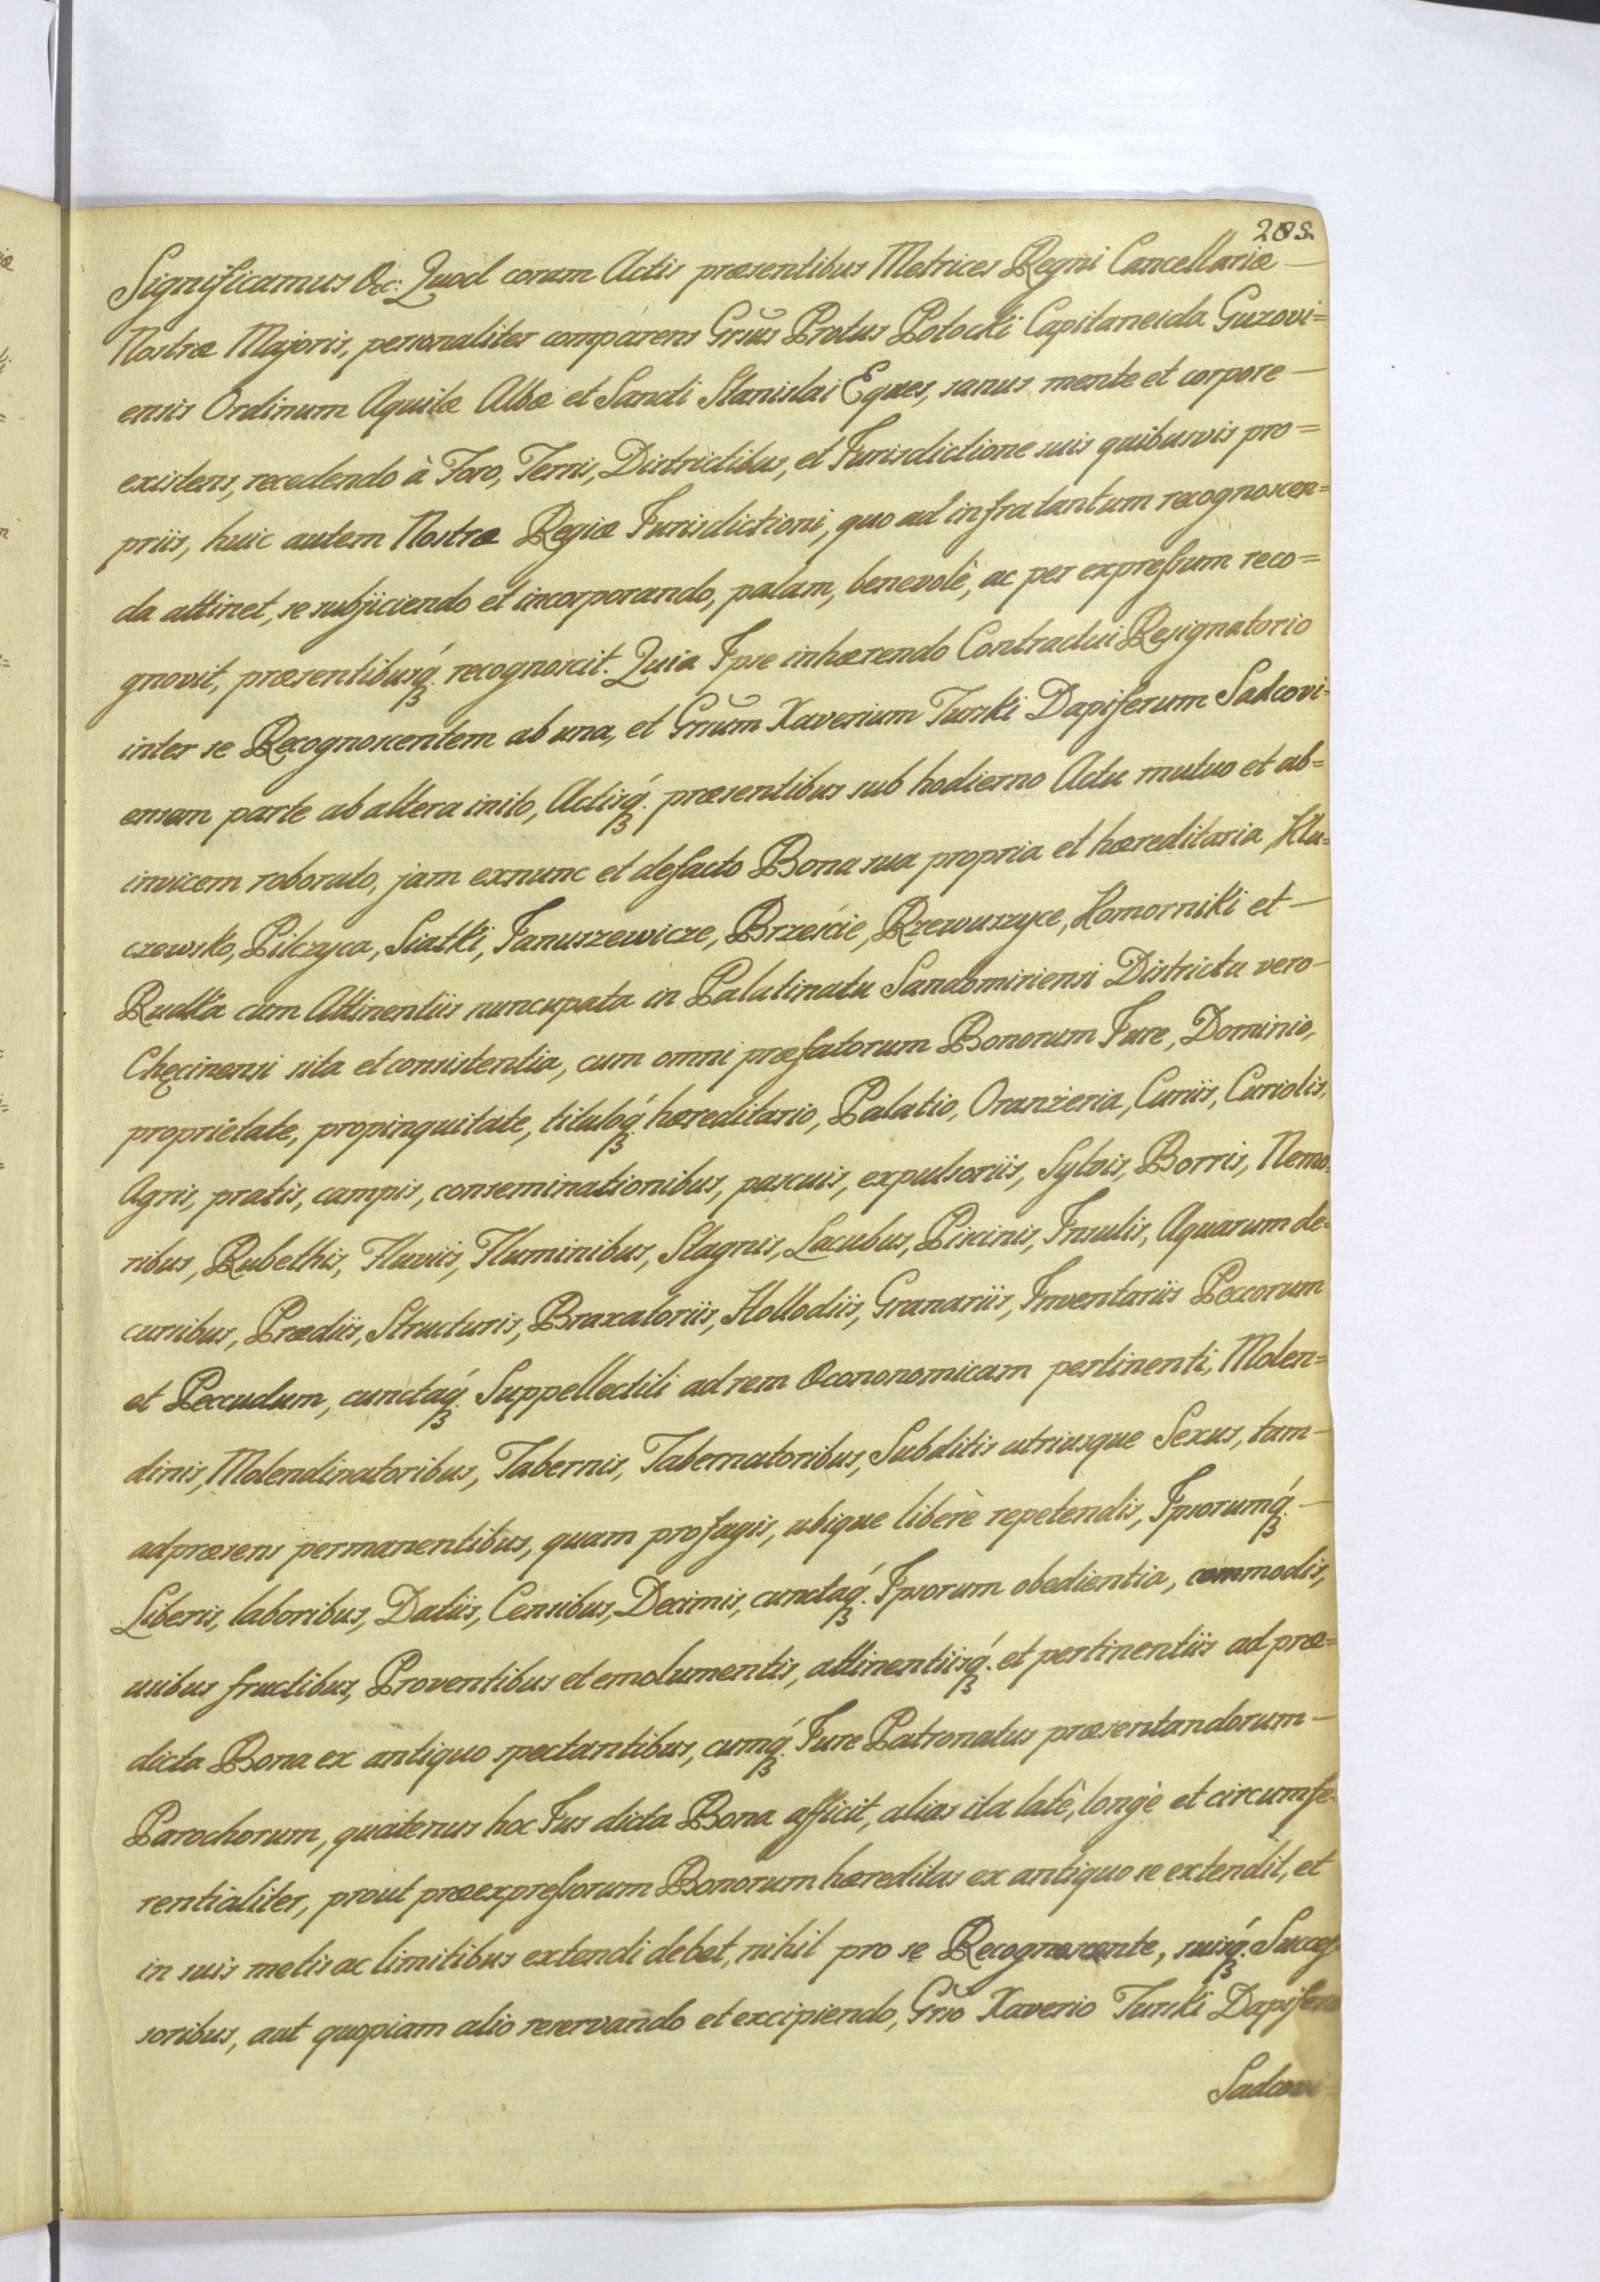 Significamus &c: Quod coram Actis præsentibus Metrices Regni Cancellariæ —
Nostræ Majoris, personaliter comparens Grsus Protus Potocki Capitaneida Guzovi=
ensis Ordinum Aquilæ Albæ et Sancti Stanislai Eques, sanus mente et corpore —
existens, recedendo à Foro, Terris, Districtibus, et Jurisdictione suis quibusvis pro=
priis, huic autem Nostræ Regiæ Jurisdictioni, quo ad infra tantum recognoscen=
da attinet, se subjiciendo et incorporando, palam, benevolè, ac per expressum reco=
gnovit, præsentibusq́ꝫ. recognoscit. Quia Ipse inhærendo Contractui Resignatorio
inter se Recognoscentem ab una, et Grsum Xaverium Turski Dapiferum Sadcovi=
ensem parte ab altera inito, Actisq́ꝫ. præsentibus sub hodierno Actu mutuo et ab=
invicem roborato, jam exnunc et defacto Bona sua propria et hæreditaria Klu=
czewsko, Pilczyca, Siatki, Januszewicze, Brzeście, Rzewuszyce, Komorniki et —
Rudka cum Attinentiis nuncupata in Palatinatu Sandomiriensi Districtu vero —
Chęcinensi sita et consistentia, cum omni præfatorum Bonorum Jure, Dominio,
proprietate, propinquitate, tituloq́ꝫ hæreditario, Palatio, Oranżeria, Curiis, Curiolis,
Agris, pratis, campis, conseminationibus, pascuis, expulsoriis, Sylvis, Borris, Nemo=
ribus, Rubethis, Fluviis, Fluminibus, Stagnis, Lacubus, Piscinis, Insulis, Aquarum de=
cursibus, Prædiis, Structuris, Braxatoriis, Hollodiis, Granariis, Inventariis Peccorum
et Peccudum, cunctaq́ꝫ. Suppellectili ad rem Oeconomicam pertinenti, Molen=
dinis, Molendinatoribus, Tabernis, Tabernatoribus, Subditis utriusque Sexus, tam —
adpræsens permanentibus, quam profugis, ubique liberè repetendis, Ipsorumq́ꝫ —
Liberis, laboribus, Datiis, Censibus, Decimis, cunctaq́ꝫ. Ipsorum obedientia, commodis,
usibus fructibus, Proventibus et emolumentis, attinentiisq́ꝫ. et pertinentiis ad præ=
dicta Bona ex antiquo spectantibus, cumq́ꝫ. Jure Patronatus præsentandorum —
Parochorum, quatenus hoc Jus dicta Bona afficit, alias ita latè, longè et circumfe=
rentialiter, prout præexpressorum Bonorum hæreditas ex antiquo se extendit, et
in suis metis ac limitibus extendi debet, nihil pro se Recognoscente, suisq́ꝫ. Succes=
soribus, aut quopiam alio reservando et excipiendo, Grso Xaverio Turski Dapifero
Sadcovi=